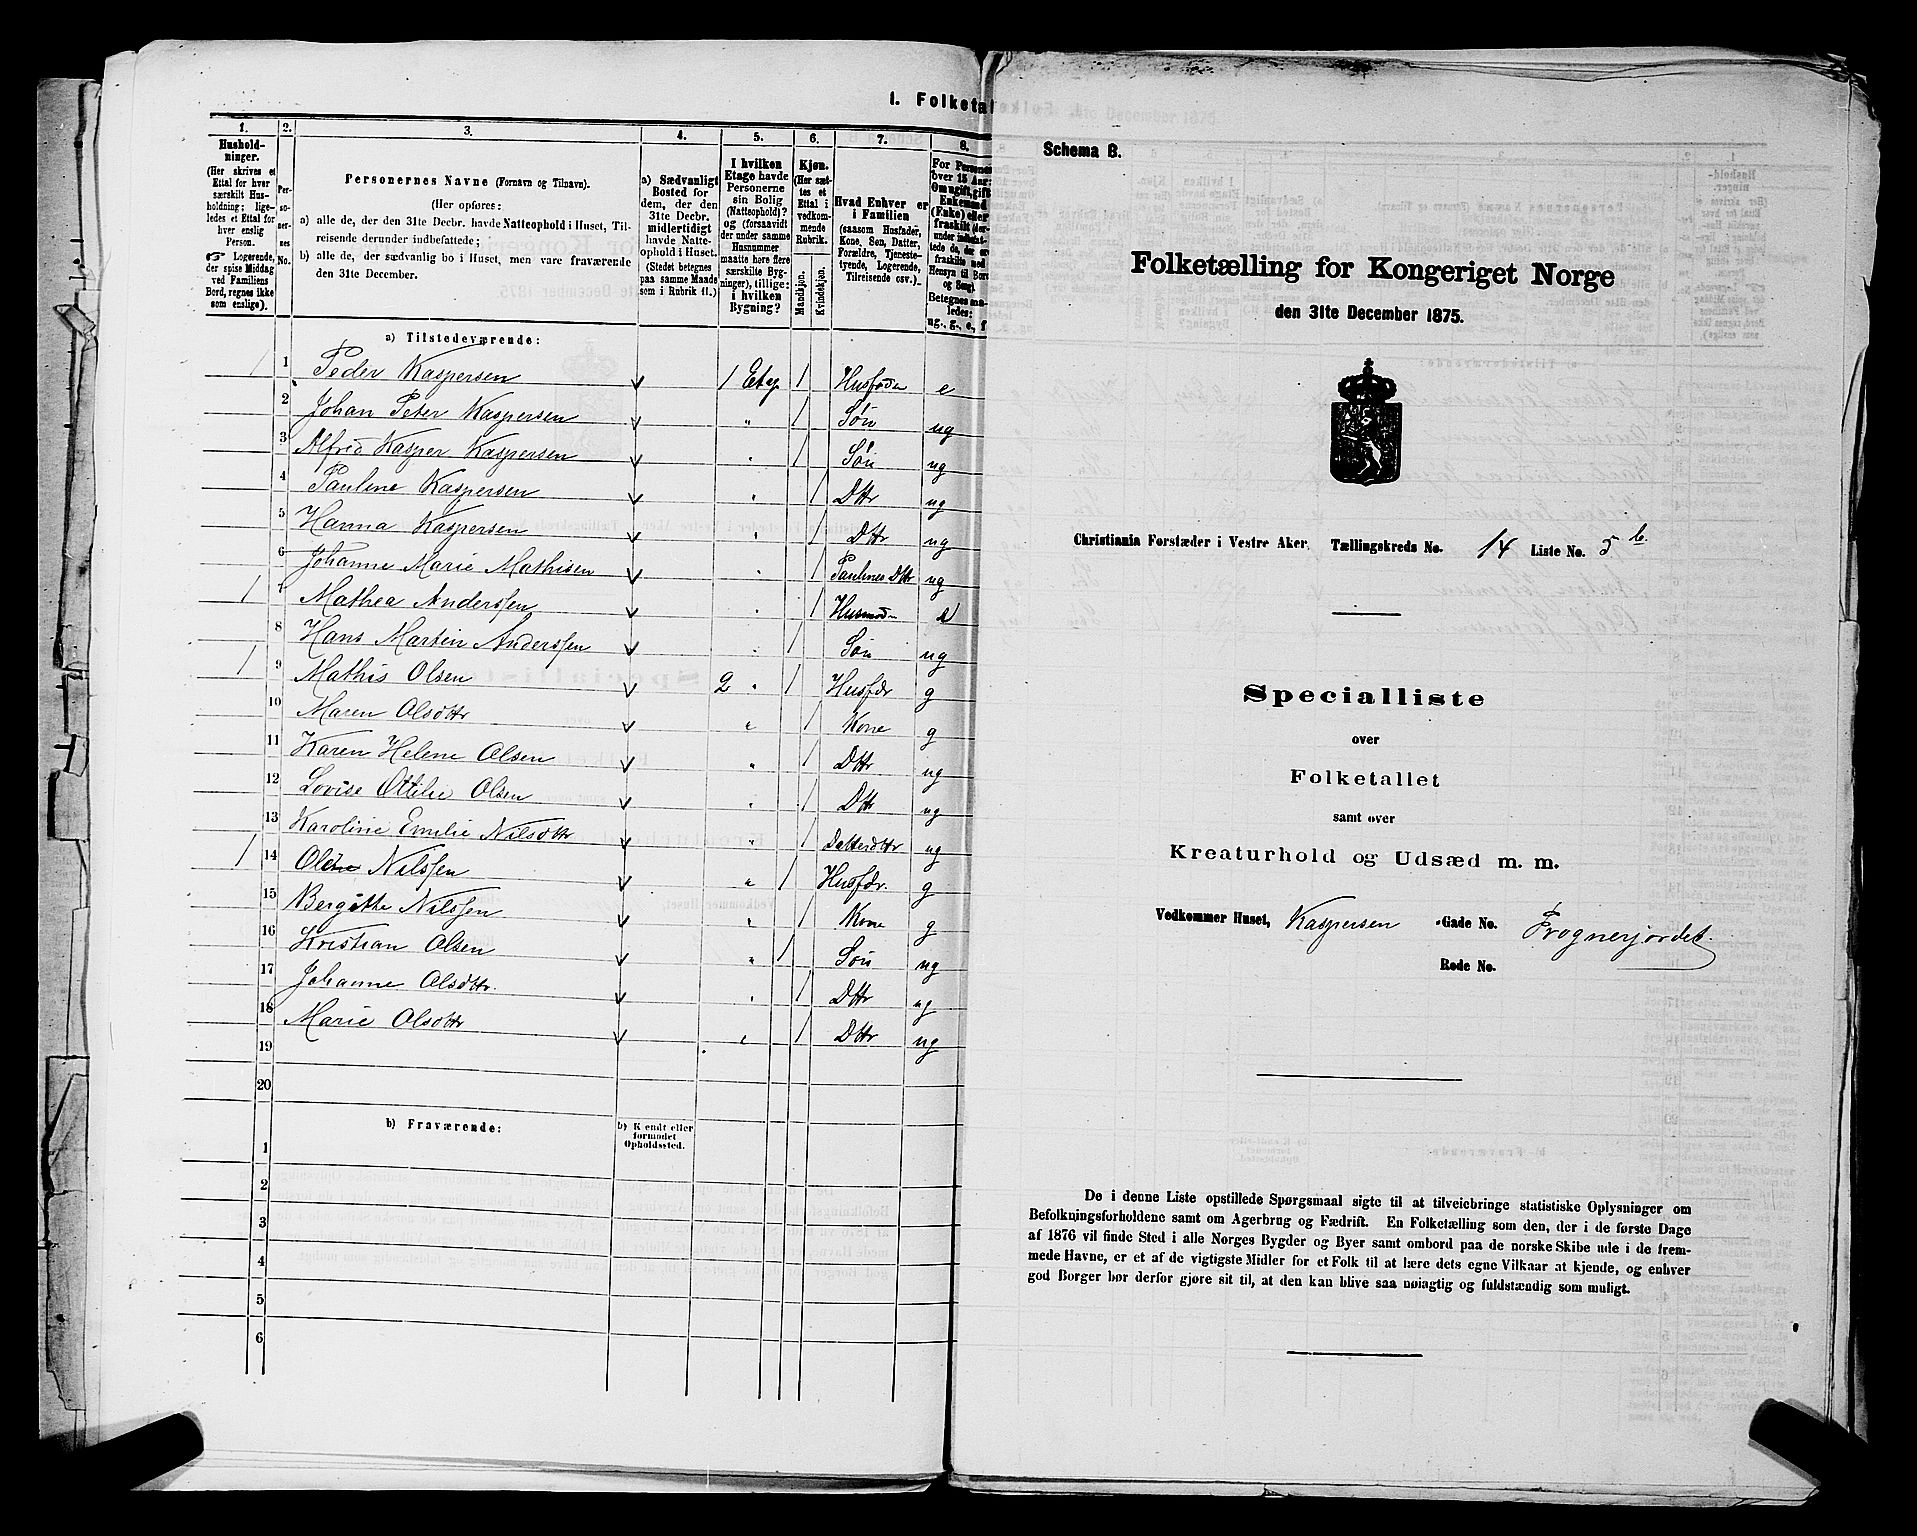 I. Folketal
1.
2.
3.
4.
5.
6.
7.
8.
Hushold-
ninger.
(Her skrives et
Ettal for hver
særskilt Hus-
holdning; lige-
ledes et Ettal for
hver enslig
Person.
☞ Logerende,
der spise Middag
ved Familiens
Bord, regnes ikke
som enslige).
Per-
so-
ner-
nes
No.
Personernes Navne (Fornavn og Tilnavn).
(Her opføres:
a) alle de, der den 31te Decbr. havde Natteophold i Huset, Til-
reisende derunder indbefattede;
b) alle de, der sædvanlig bo i Huset, men vare fraværende
den 31te December.
a) Sædvanligt
Bosted for
dem, der den
31te Decbr.
midlertidigt
havde Natte-
ophold i Huset.
(Stedet betegnes
paa samme Maade
som i Rubrik 11.)
I hvilken
Etage havde
Personerne
sin Bolig
(Natteophold)?
og (forsaavidt
der under samme
Husnummer
maatte høre flere
særskilte Byg-
ninger), tillige:
i hvilken
Bygning?
Kjøn.
(Her sæt-
tes et
Ettal i
vedkom-
mende
Rubrik.
Mandkjøn.
Kvindekjøn.
Hvad Enhver er
i Familien
(saasom Husfader,
Kone, Søn, Datter,
Forældre, Tjeneste-
tyende, Logerende,
Tilreisende osv.).
For Personer
over 15 Aar:
Om ugift, gift
Enkemand
(Enke) eller
fraskilt
Betegnes saa-
ledes:
ug., g., e, f
a) Tilstedeværende:
1 1 Peder Kaspersen 1 Etg. 1 Husfader e
2 Johan Peter Kaspersen " 1 Søn ug
3 Alfred Kasper Kaspersen " 1 Søn ug
4 Pauline Kaspersen " 1 Dttr ug
5 Hanna Kaspersen " 1 Dttr ug
6 Johanne Marie Mathisen " 1 Paulines Dttr ug
1 7 Mathea Anderssen " 1 Husmoder e
8 Hans Martin Anderssen " 1 Søn ug
1 9 Mathis Olsen 2 " 1 Husfdr g
10 Maren Olsdttr " 1 Kone g
11 Karen Helene Olsen " 1 Dttr ug
12 Lovise Ottilie Olsen " 1 Dttr ug
13 Karoline Emilie Nilsdttr " 1 Datterdttr ug
1 14 Ole Nilssen " 1 Husfdr. g
15 Bergitte Nilssen " 1 Kone g
16 Kristian Olsen " 1 Søn ug
17 Johanne Olsdttr. " 1 Dttr ug
18 Marie Olsdttr " 1 Dttr ug
19
20
b) Fraværende:
b) Kjendt eller
formodet
Opholdssted.
1
2
3
4
5
6
Schema B.
Folketælling for Kongeriget Norge
den 31te December 1875.
Christiania Forstæder i Vestre Aker. Tællingskreds No. 14 Liste No. 5 b.
Specialliste
over
Folketallet
samt over
Kreaturhold og Udsæd m. m.
Vedkommer Huset, Kaspersen Gade No. Frognerjordet.
Rode No.
De i denne Liste opstillede Spørgsmaal sigte til at tilveiebringe statistiske Oplysninger om
Befolkningsforholdene samt om Agerbrug og Fædrift. En Folketælling som den, der i de første Dage
af 1876 vil finde Sted i alle Norges Bygder og Byer samt ombord paa de norske Skibe ude i de frem-
mede Havne, er et af de vigtigste Midler for et Folk til at lære dets egne Vilkaar at kjende, og enhver
god Borger bør derfor gjøre sit til, at den kan blive saa nøiagtig og fuldstændig som muligt.